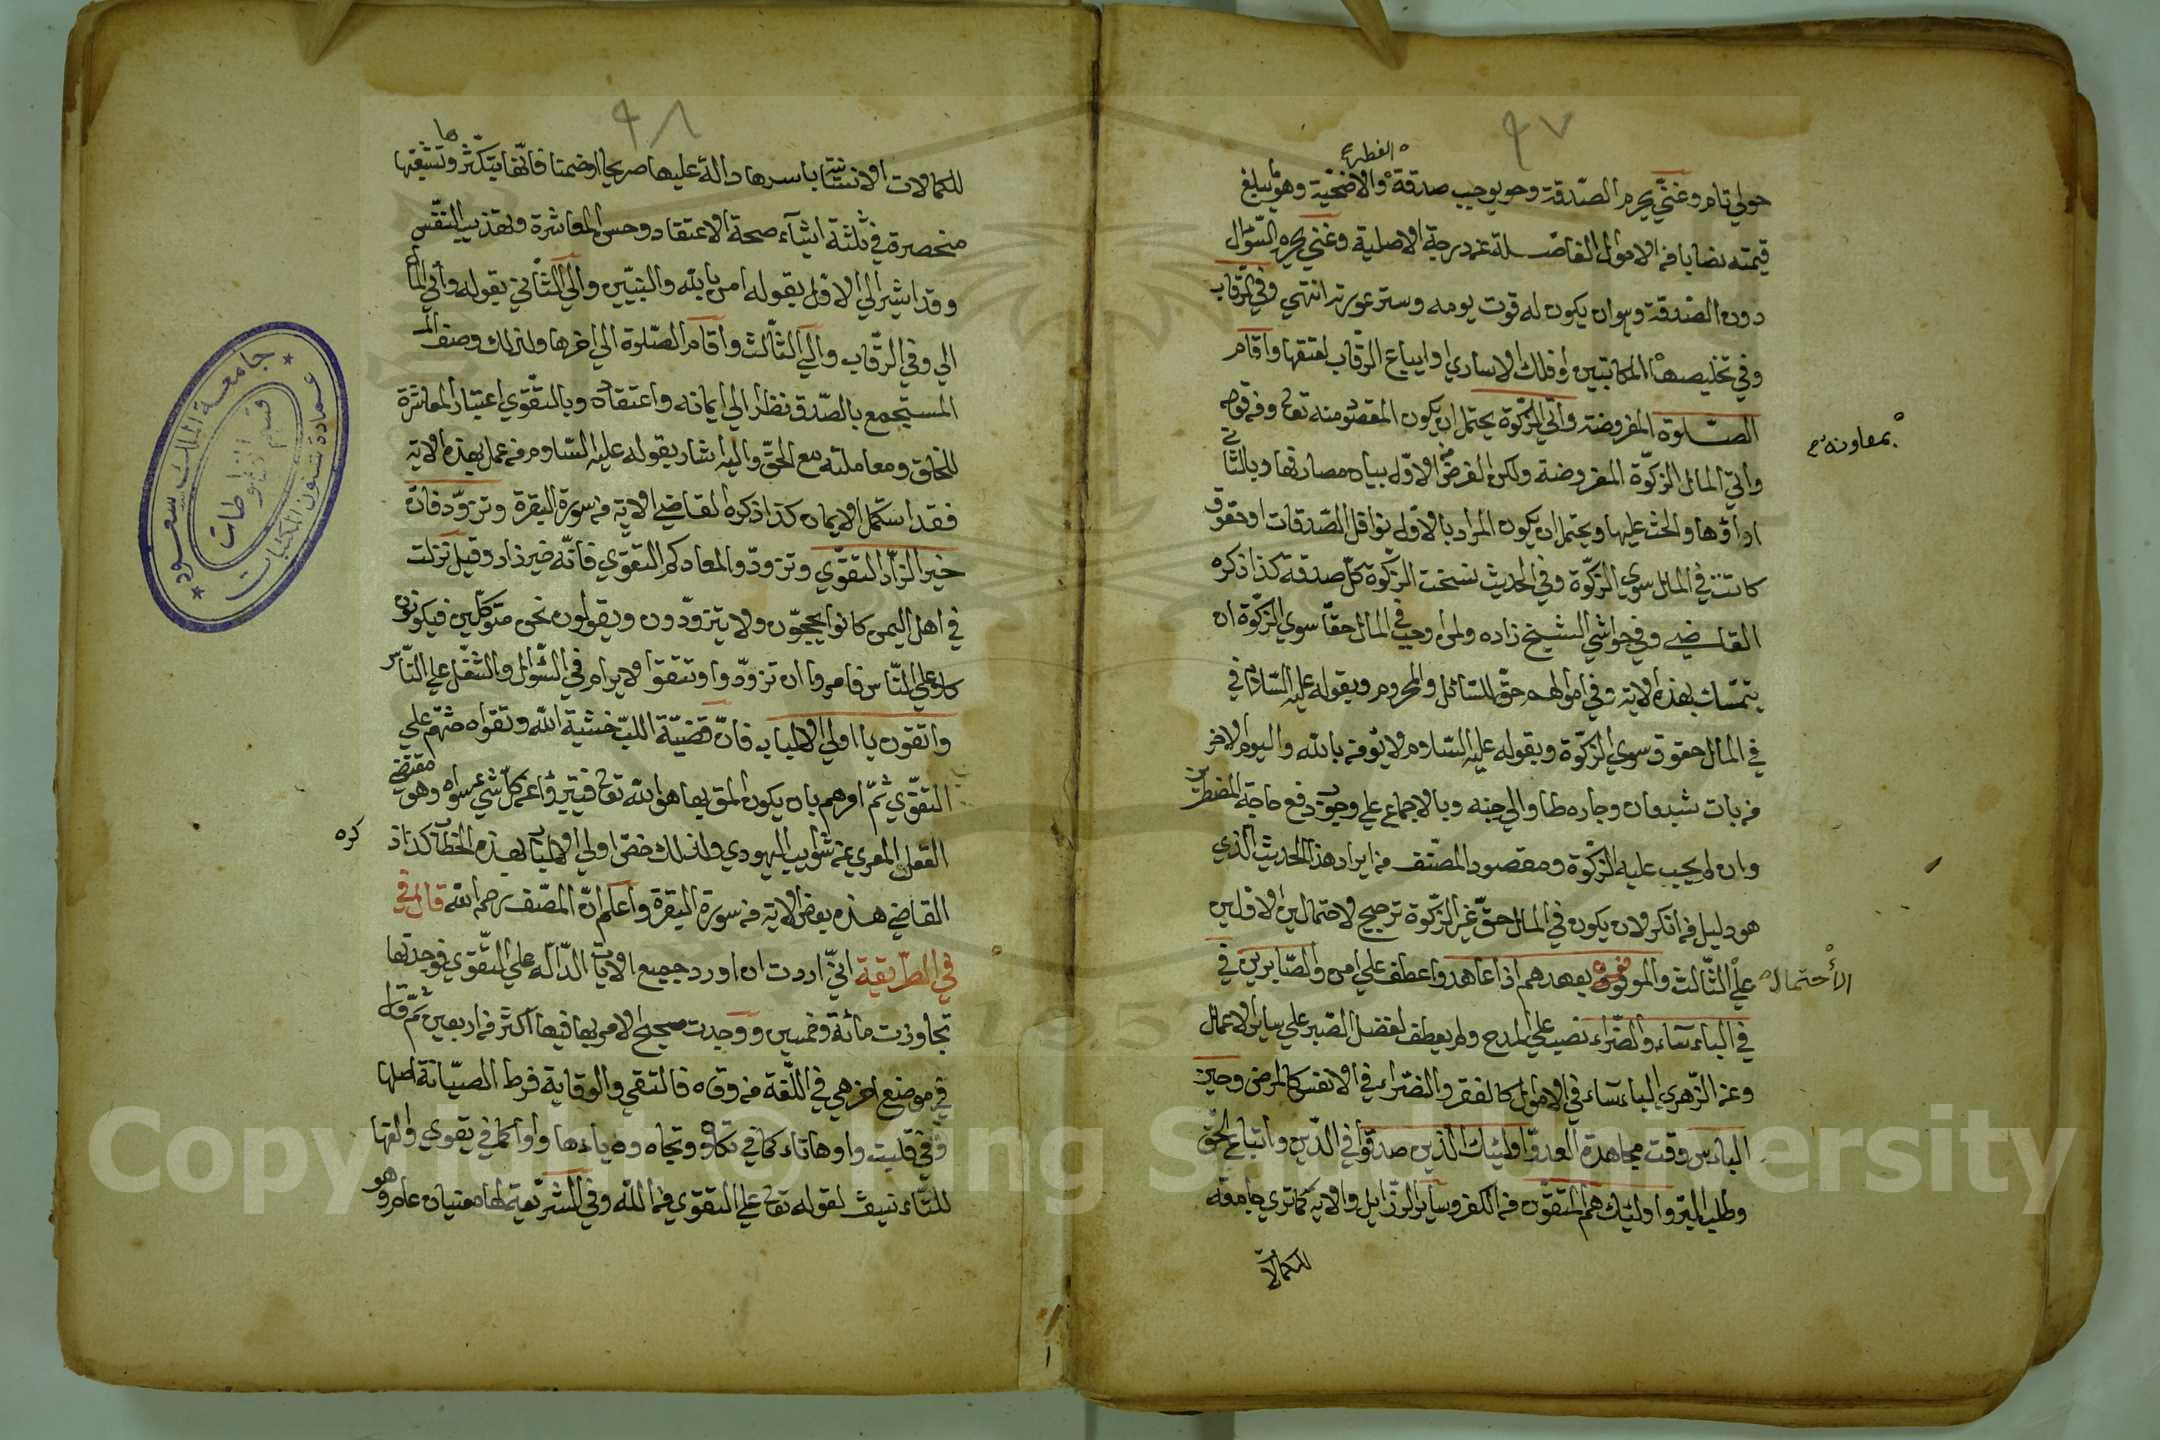 ٩٧
حولي تام وغني يحرم الصّدقة وهو يوجب صدقة الفطر والاضحيّة وهو ما يبلغ
قيمته نصابا من الاموال الفاضلة عن درجة الاصلية وغني يحرم السّؤال
دون الصّدقة وهو ان يكون له قوت يومه وستر عورته انتهي وفي الرّقاب
وفي تخليصها المكاتبين او فك الاساري او ابتياع الرقاب لعتقها واقام
الصّلوة المفروضة واتي الزّكوة يحتمل ان يكون المقصود منه تع ومن قوله
بمعاونة صح
واتي المال الزكوّة المفروضة ولكن الغرض من الاوّل بيان مصارفها وبالثّاني
اداؤها والحث عليها ويحتمل ان يكون المراد بالاوّل نوافل الصّدقات او حقوق
كانت في المال سوي الزكوّة وفي الحديث نسخت الزكوّة كلّ صدقة كذا ذكره
القاضي وفي حواشي الشيخ زاده ولمن اوجب في المال حقّا سوي الزكوّة ان
يتمسّك بهذه الاية وفي اموالهم حقّ للسّائل والمحروم وبقوله عليه السّلام في
في المال حقوق سوي الزكوّة وبقوله عليه السّلام لا يؤمن بالله واليوم الاخر
من بات شبعان وجاره طاو الي جنبه وبالاجماع علي وجوب دفع حاجة المضطرين
وان لم يجب عليه الزكوّة ومقصود المصّنف من ايراد هذا الحديث الّذي
هو دليل من انكر لان يكون في المال حقّ غير الزكوّة ترجيح لاحتمالين الاوّلين
علي الثّالث والموفون بعهدهم اذا عاهدوا عطف علي امن والصّابرين في
الأحتمال
في الباءسآء والضّراء نصب علي المدح ولم يعطف لفضل الصّبر علي ساير الاعمال
وعن الزّهري الباءسآء في الاموال كالفقر والضّراء في الانفس كالمرض وحين
الباءس وقت مجاهدة العدوّ اولئك الّذين صدقوا في الدّين واتباع الحقّ
وطلب البرّ واولئك هم المتقون من الكفر وساير الرّزايل والاية كما تري جامعة
للكمالات
٩٨
للكمالات الانسانية باسرها دالة عليها صريحا او ضمنا فانّها بتكّثرها وتشعّبها
منحصرة في ثلثة اشيآء صحة الاعتقاد وحسن المعاشرة وتهذيب النّفس
وقد اشير الي الاوّل بقوله امن بالله والنبيّين والي الثّاني بقوله وآتي المال
الي وفي الرّقاب والي الثّالث واقام الصّلوة الي اخرها ولذلك وصف المـ
المستجمع بالصّدق نظرا الي ايمانه واعتقاده وبالتقّوي اعتبار المعاشرة
للخلق ومعاملته مع الحقّ واليه اشار بقوله عليه السّلام من عمل بهذه الاية
فقد استكمل الايمان كذا ذكره القاضي الاية من سورة البقرة وتزوّد فانّ
خير الزّاد التقوّي وتزوّدوا لمعادكم التقوّي فانّه خير زاد وقيل نزلت
في اهل اليمن كانوا يحجوّن ولا يتزوّدون ويقولون نحن متوكّلين فيكونون
كلا علي النّاس فامروا ان تزوّدوا وتتقوا الابرام في السّؤال والثّقل علي النّاس
واتقون يا اولي الالباب فانّ قضيّة اللبّ خشية الله وتقواه حثّهم علي
التقوّي ثمّ امرهم بان يكون المق بها هو الله تع فتيبرؤا عن كلّ شي سواه وهو مقتضي
العقل المعري عن شوايب الهودي ولذلك خصّ اولي الالباب بهذه الخطاب كذا ذ
كره
القاضي هذه بعض الاية من سورة البقرة واعلم انّ المصّنف رحمه الله قال في
في الطّريقة انيّ اردت ان اورد جميع الايات الدّالّه علي التقّوي فوجدتها
تجاوزت مائة وخمسين ووجدت صيح الامر بها فيها اكثر من اربعين ثمّ قال
في موضع اخر هي في اللّغة من وقاه فاتقي والوقاية فرط الصيّانة اصلها
وقي قلبت واوها تاء كما في تكلان وتجاه و ياءها واوا كما في تقوي والفها
للتّأنيث لقوله تع علي التقوي من الله وفي الشّريعة لها معنيان عام وهو
جامعة الملك سعود
عمادة شئون المكتبات
قسم المخطوطات
Copyright © King Saud University